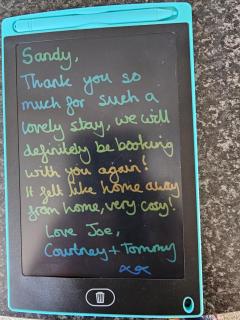 Sandy,
Thank you so
much for such a
lovely stay, we will
definitely be booking
with you again!
It felt like home away
from home, very cosy!
Love Joe,
Courtney + Tommy
xx